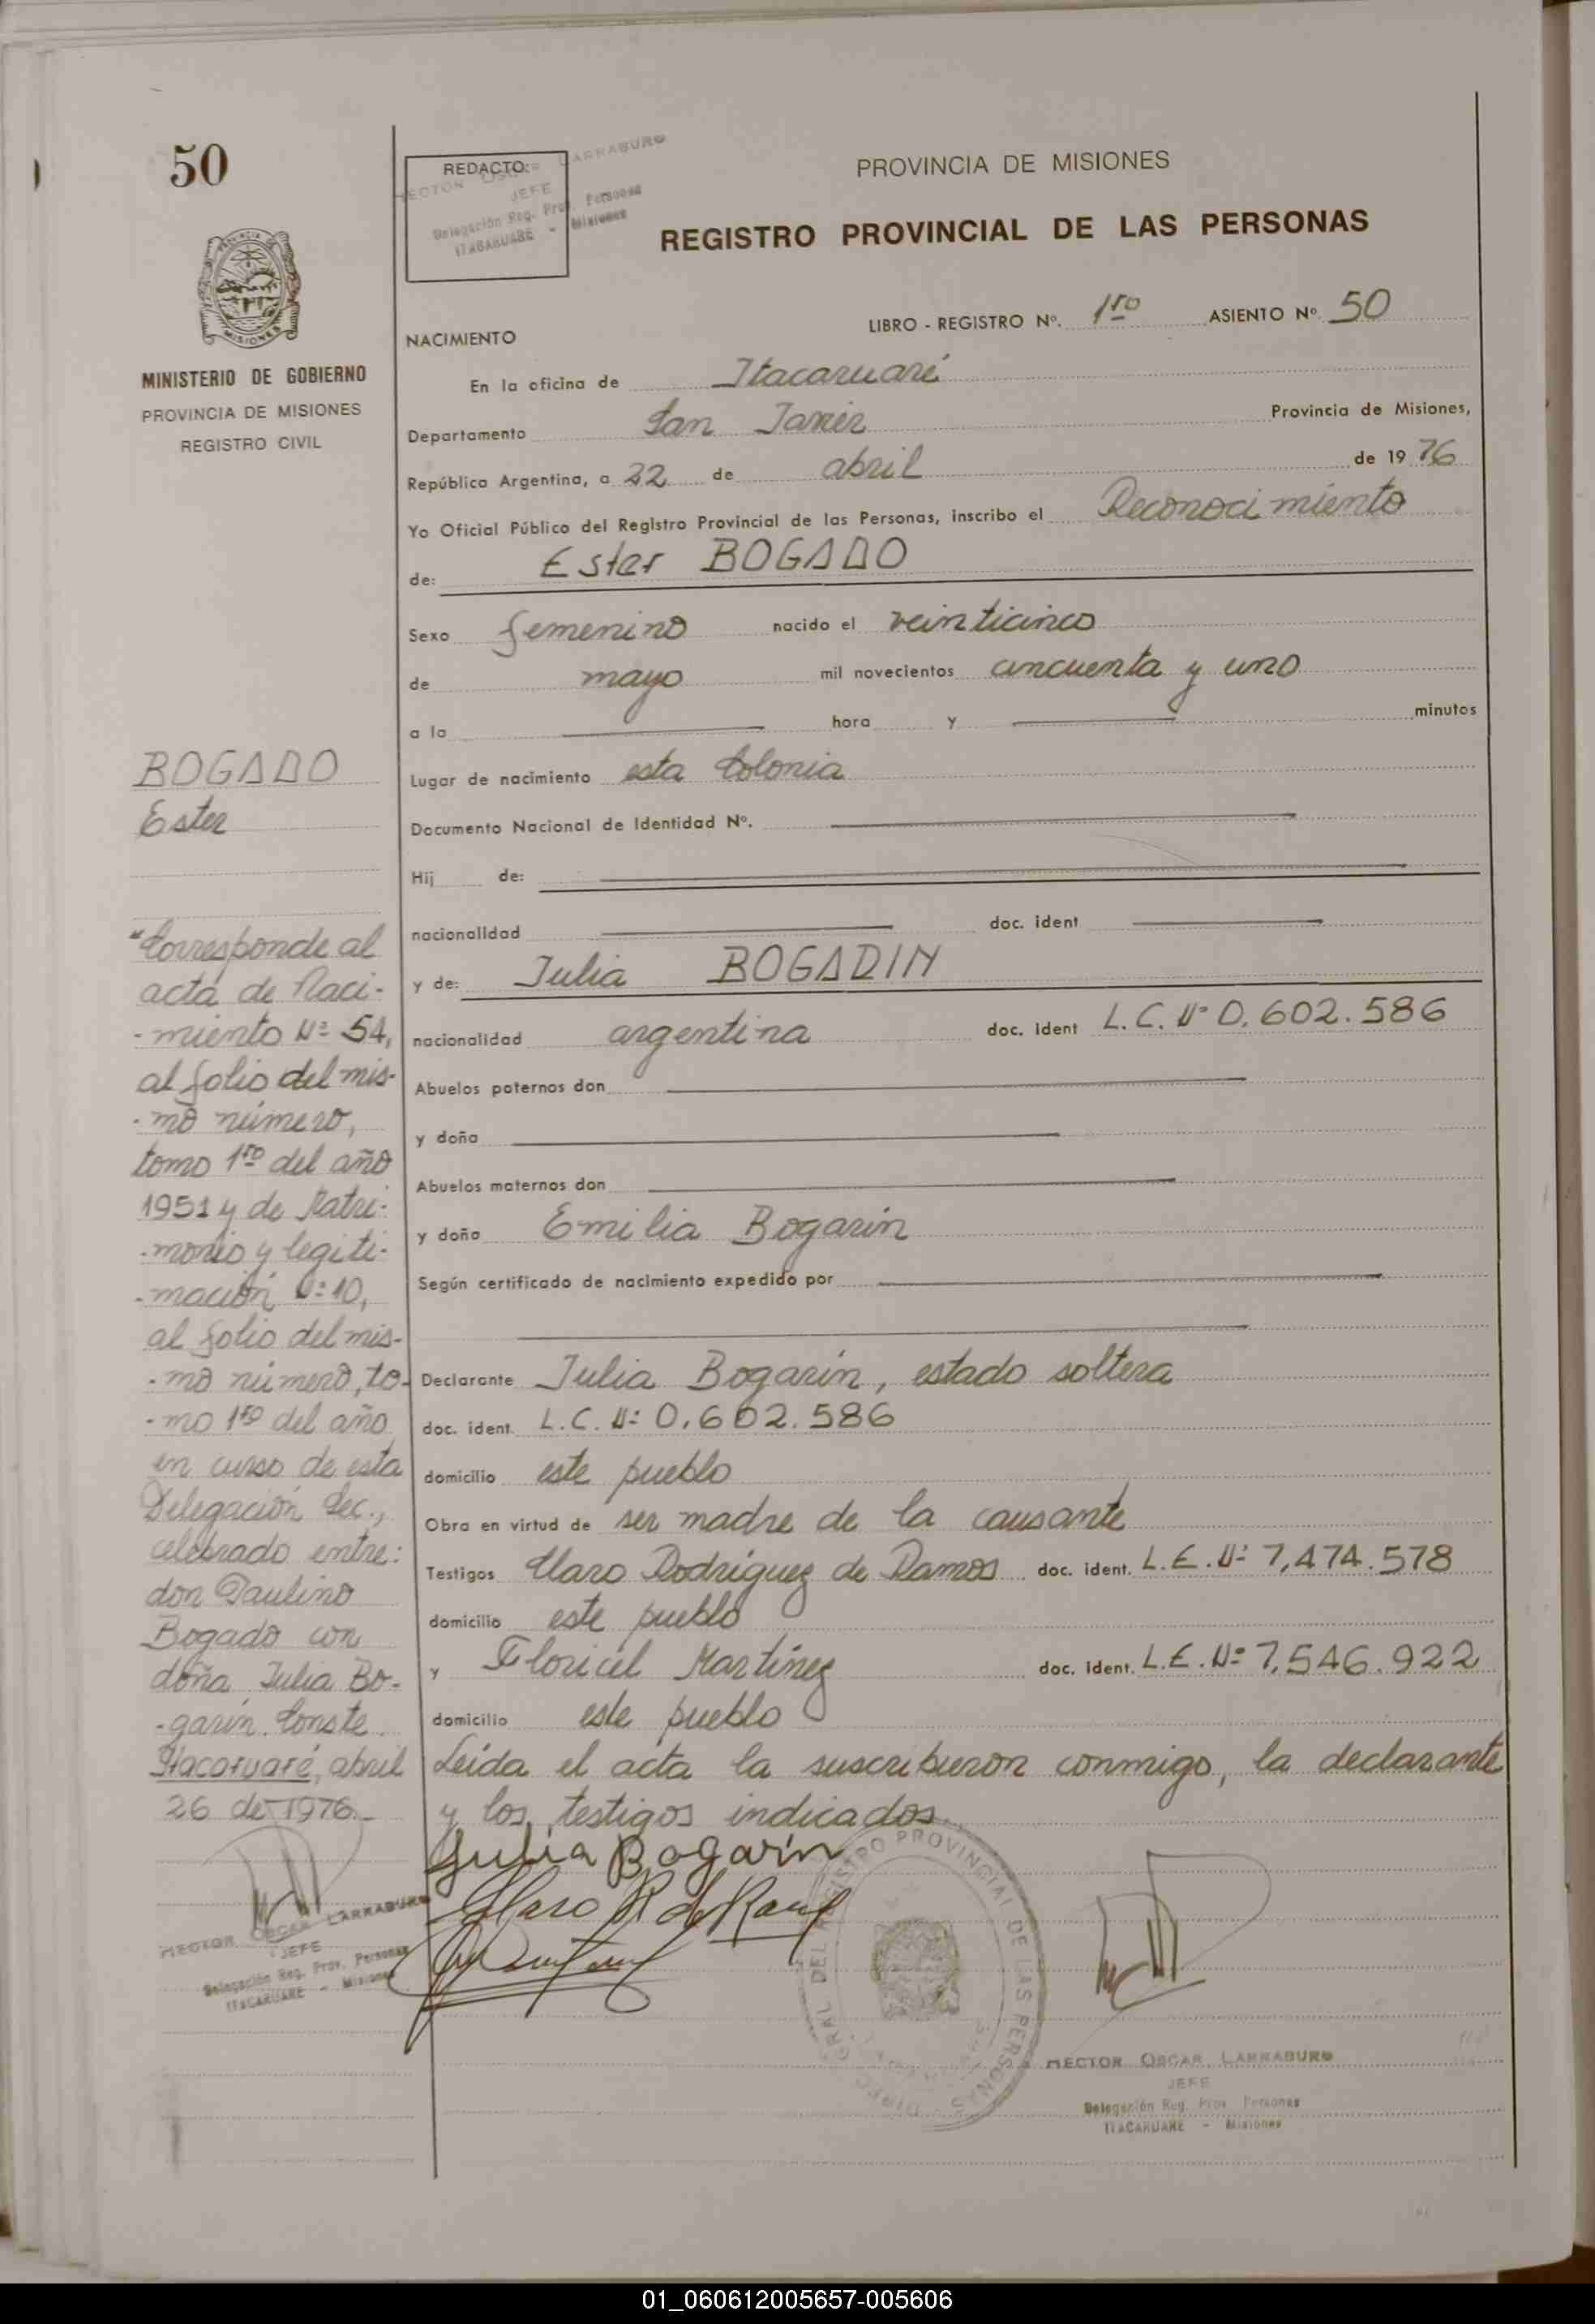 50
REDACTO:
HECTOR OSCAR LARRABURO
JEFE
Delegación Reg. Prov. Personas
ITACARUARE - Misiones
PROVINCIA DE MISIONES
REGISTRO PROVINCIAL DE LAS PERSONAS
MINISTERIO DE GOBIERNO
PROVINCIA DE MISIONES
REGISTRO CIVIL
LIBRO - REGISTRO Nº. 1ro ASIENTO Nº 50
NACIMIENTO
En la oficina de Itacaruaré
Departamento San Javier Provincia de Misiones,
República Argentina, a 22 de abril de 1976
Yo Oficial Público del Registro Provincial de las Personas, inscribo el Reconocimiento
de: Ester BOGADO
Sexo femenino nacido el veinticinco
de mayo mil novecientos cincuenta y uno
a la hora y minutos
Lugar de nacimiento esta Colonia
Documento Nacional de Identidad Nº.
Hij de:
nacionalidad doc. ident
y de: Julia BOGADIN
nacionalidad argentina doc. ident L.C. Nº 0.602.586
Abuelos paternos don
y doña
Abuelos maternos don
y doña Emilia Bogarin
Según certificado de nacimiento expedido por
Declarante Julia Bogarin, estado soltera
doc. ident. L.C. Nº 0.602.586
domicilio este pueblo
Obra en virtud de ser madre de la causante
Testigos Claro Rodriguez de Ramos doc. ident. L.E. Nº 7,474.578
domicilio este pueblo
y Floricel Martinez doc. ident. L.E. Nº 7,546.922
domicilio este pueblo
Leída el acta la suscribieron conmigo, la declarante
y los testigos indicados
Julia Bogarín
Claro R de Ram
BOGADO
Ester
"Corresponde al
acta de Naci-
-miento Nº 54,
al folio del mis-
-mo número,
tomo 1ro del año
1951 y de Matri-
-monio y legiti-
-mación Nº 10,
al folio del mis-
-mo número, to-
-mo 1ro del año
en curso de esta
Delegación Sec.,
celebrado entre:
don Paulino
Bogado con
doña Julia Bo-
-garin. Conste.
Itacaruaré, abril
26 de 1976.-
HECTOR OSCAR LARRABURO
JEFE
Delegación Reg. Prov. Personas
ITACARUARE - Misiones
REGISTRO PROVINCIAL DE LAS PERSONAS
HECTOR OSCAR LARRABURO
JEFE
Delegación Reg. Prov. Personas
ITACARUARE - Misiones
01_060612005657-005606